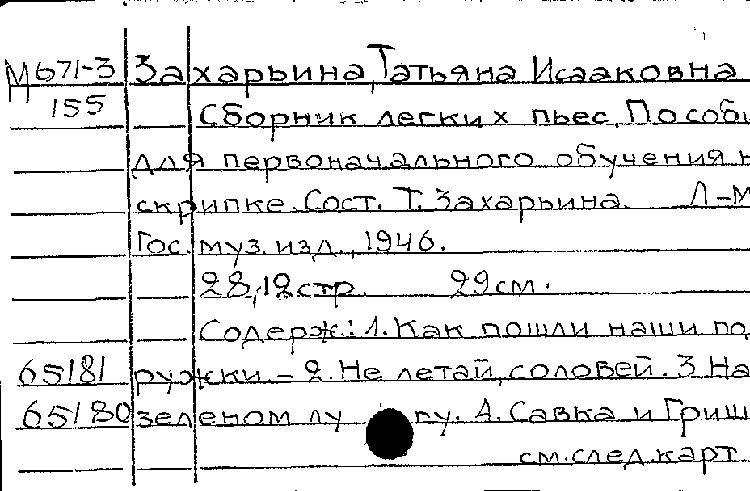 М671-3 Захарьина, Татьяна Исааковна
155 Сборник легких пьес. Пособи
для первоначального обучения н
скрипке. Сост. Т. Захарьина. Л-М
Гос. муз. изд., 1946.
28,12стр. 29см.
Содерж.: 1. Как пошли наши под
65181 ружки. – 2. Не летай, соловей. 3 На
65180 зеленом лу гу. 4. Савка и Гриш
см.след.карт